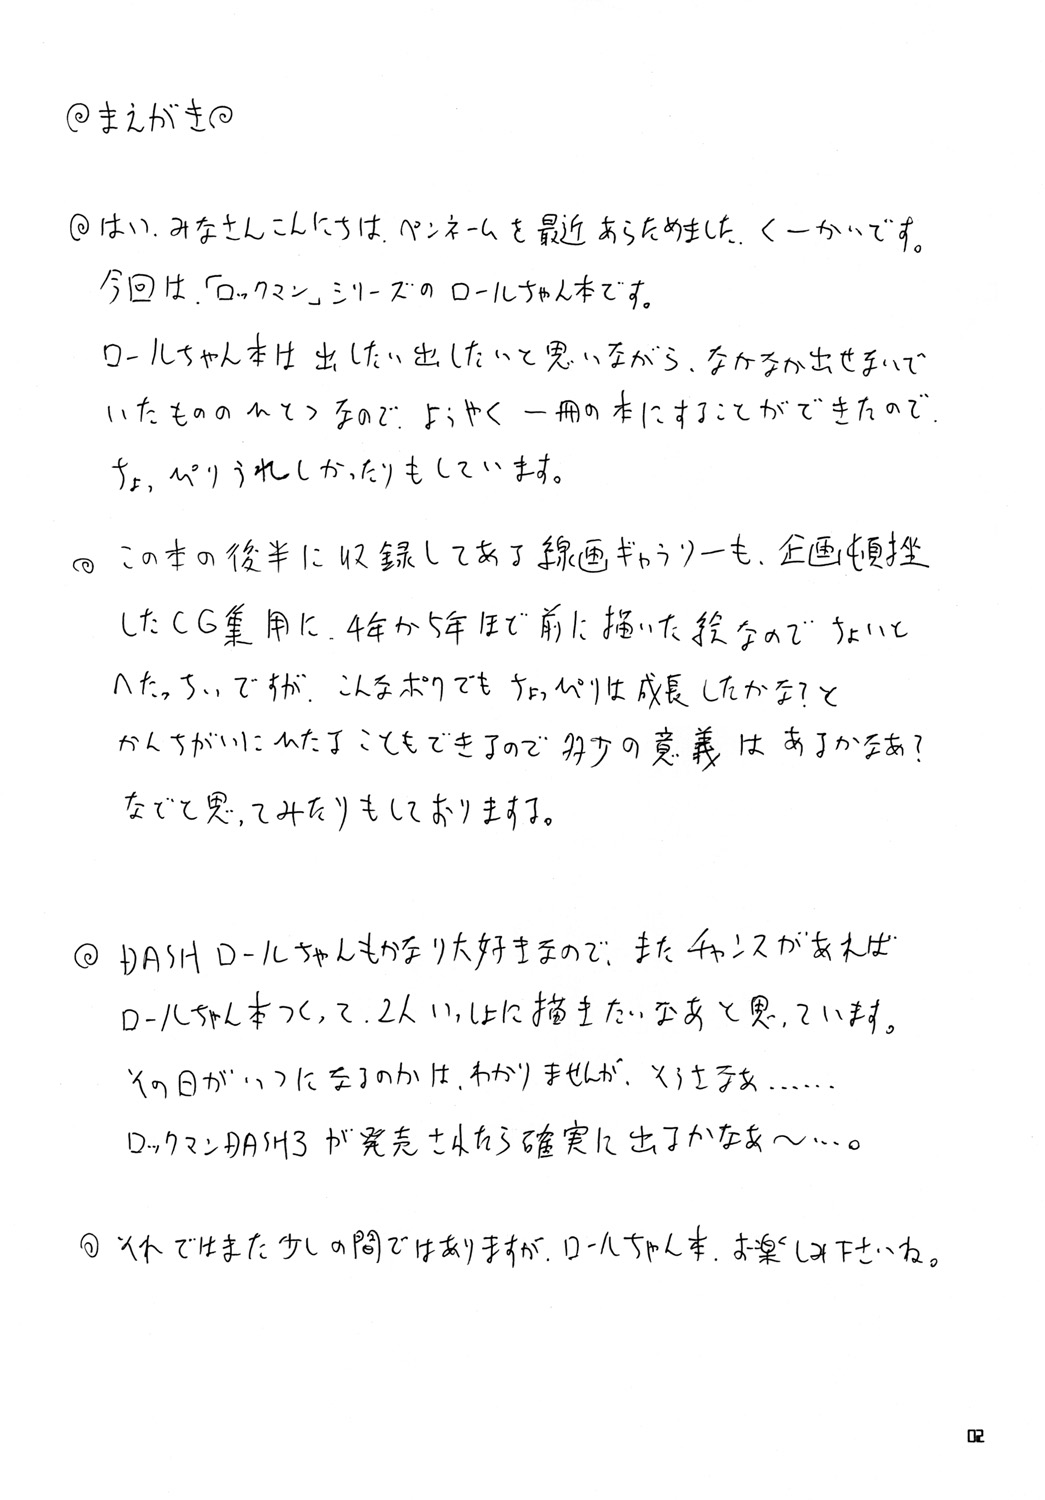 まえがき
はい、みなさんこんにちは、ペンネームを最近あらためました、くーかいです。
今回は、「ロックマン」シリーズのロールちゃん本です。
ロールちゃん本は出したい出したいと思いながら、なかなか出せないで
いたもののひとつなので、ようやく一冊の本にすることができたので、
ちょっぴりうれしかったりもしています。
この本の後半に収録してある線画ギャラリーも、企画頓挫
したCG集用に、4年から5年ほど前に描いた絵なのでちょいと
へたっちぃですが、こんなボクでもちょっぴりは成長したかな?と
かんちがいにひたることもできるので多少の意義はあるかなぁ?
などと思ってみたりもしておりまする。
DASHロールちゃんもかなり大好きなので、またチャンスがあれば
ロールちゃん本つくって、2人いっしょに描きたいなあと思っています。
その日がいつになるのかは、わかりませんが、そうさなぁ……
ロックマンDASH3が発売されたら確実に出るかなぁ〜…。
それではまた少しの間ではありますが、ロールちゃん本、お楽しみ下さいね。
02